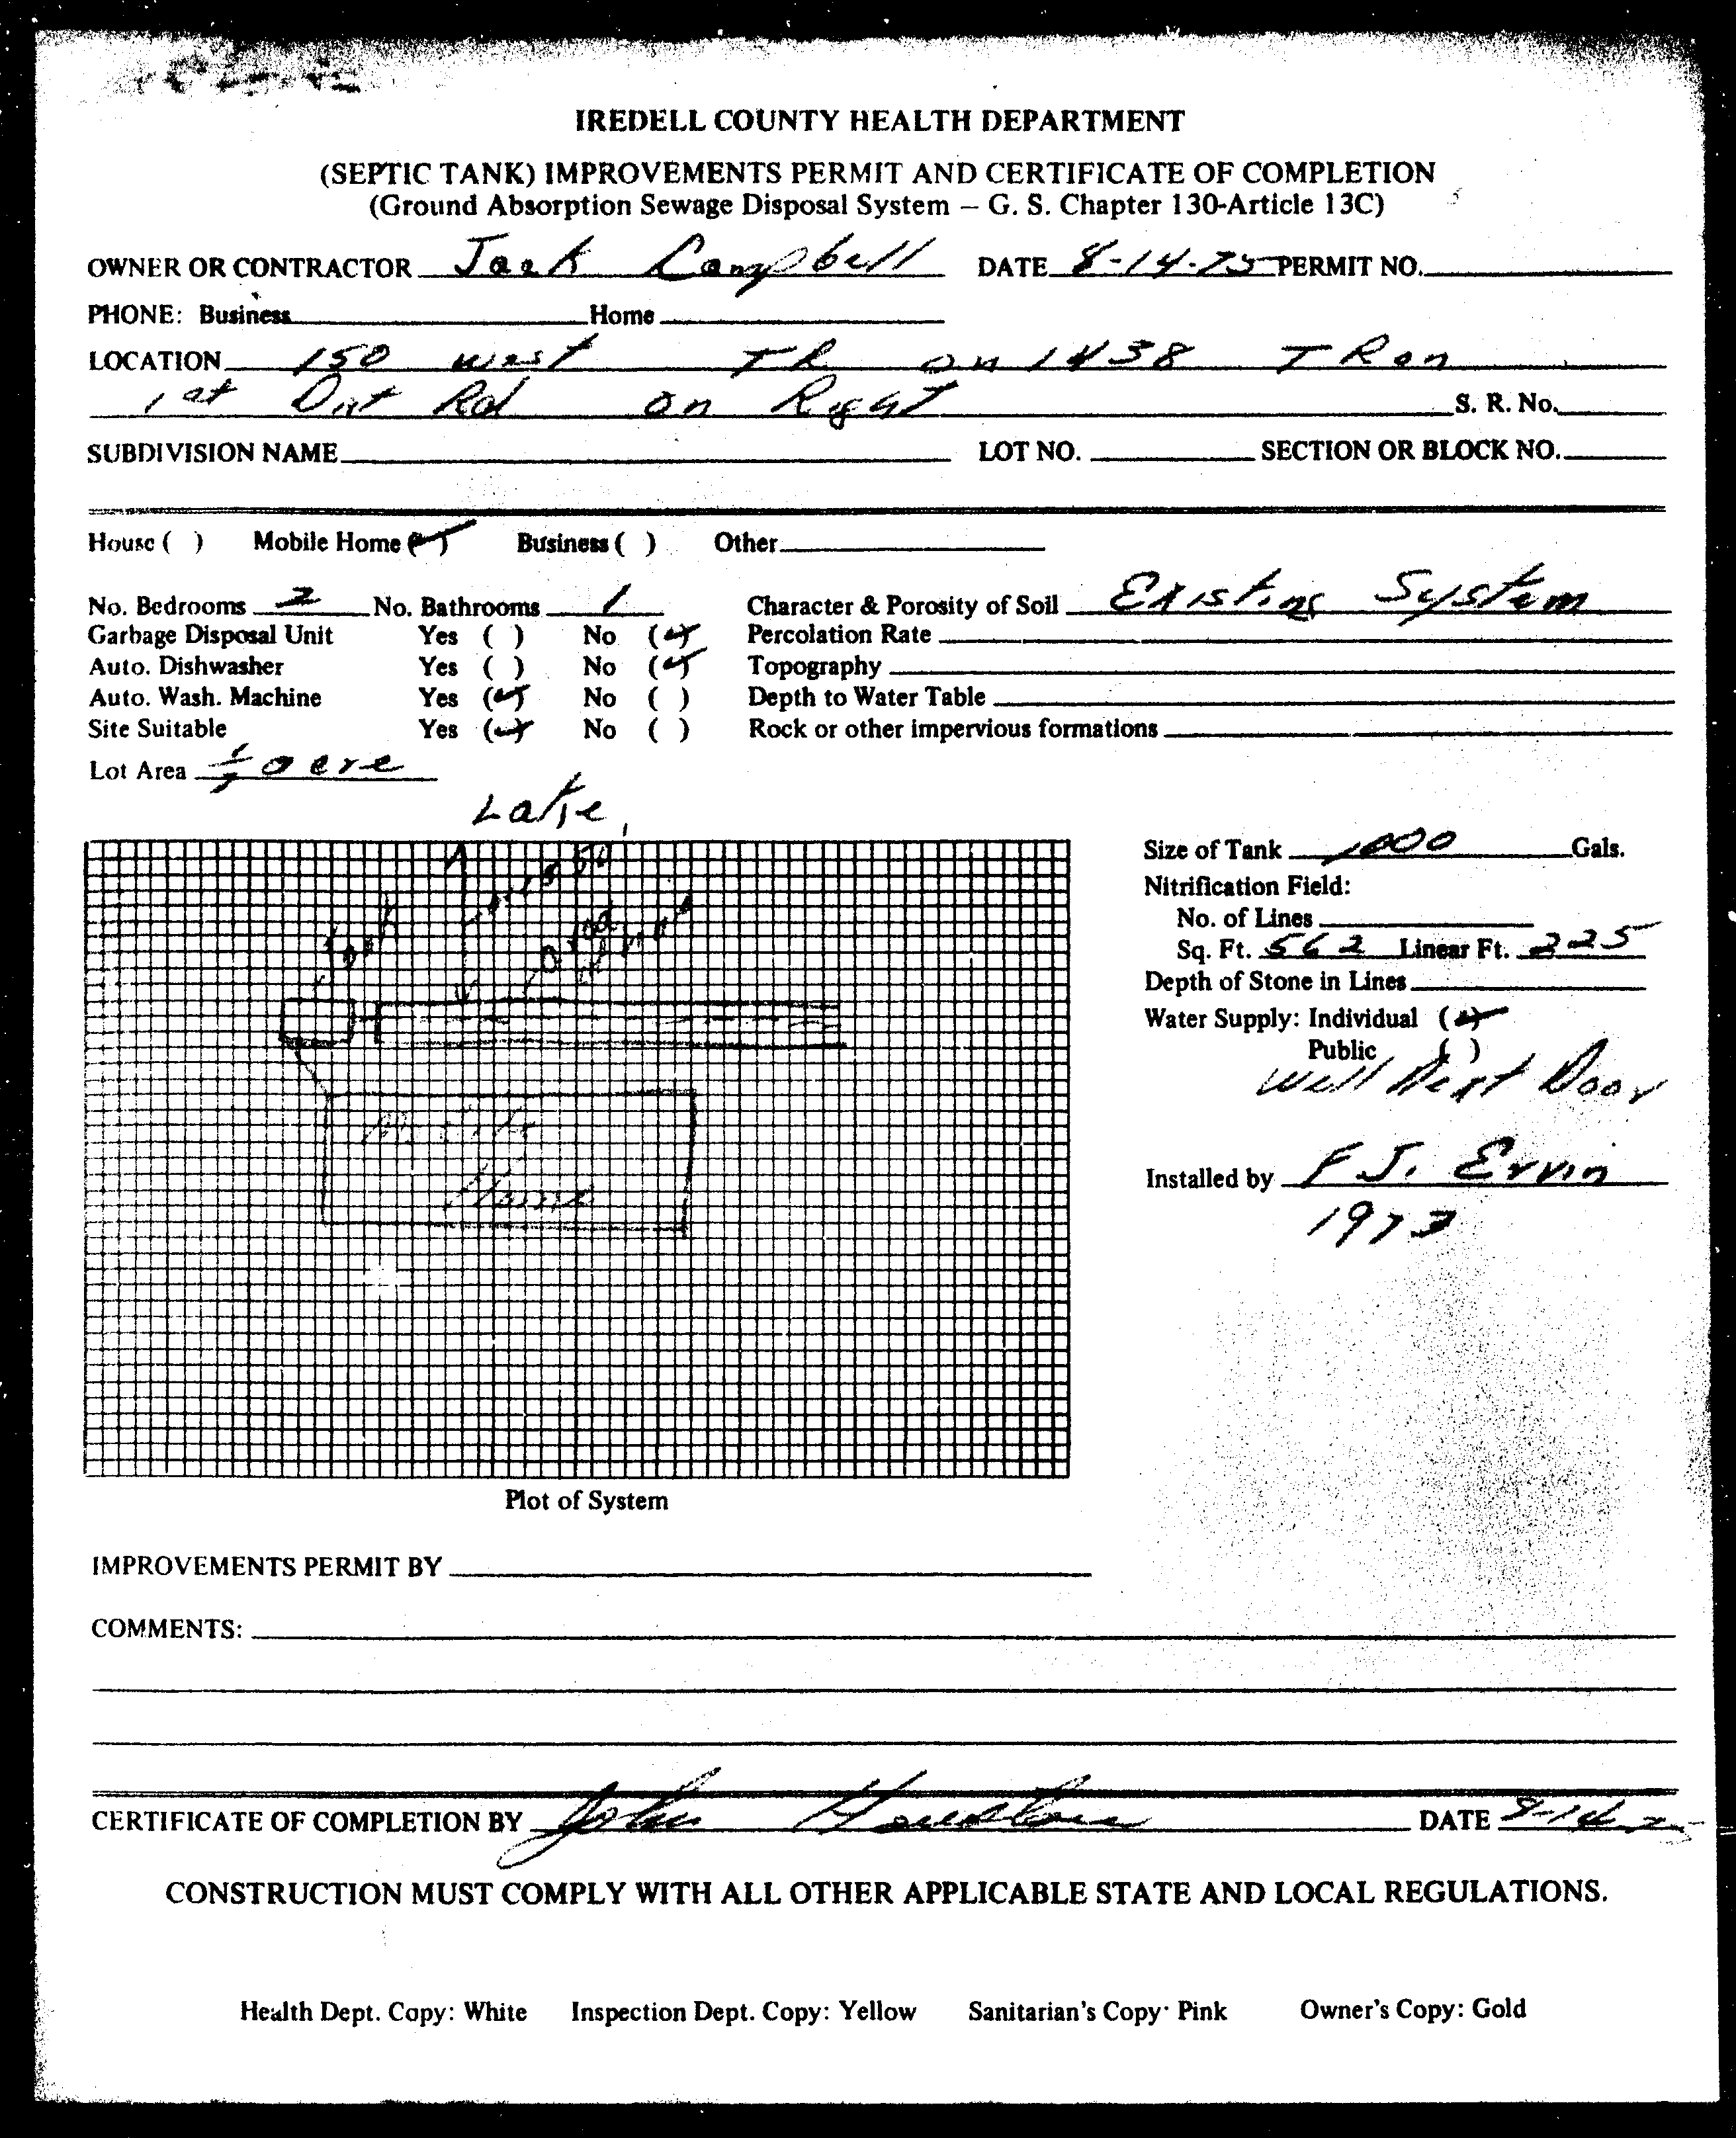 IREDELL COUNTY HEALTH DEPARTMENT
(SEPTIC TANK) IMPROVEMENTS PERMIT AND CERTIFICATE OF COMPLETION
(Ground Absorption Sewage Disposal System – G. S. Chapter 130-Article 13C)
OWNER OR CONTRACTOR Jack Campbell DATE 8-14-75 PERMIT NO.
PHONE: Business Home
LOCATION 150 west TR on 1438 TR on
1st Dirt Rd on Right S. R. No.
SUBDIVISION NAME LOT NO. SECTION OR BLOCK NO.
House ( ) Mobile Home (✓) Business ( ) Other
No. Bedrooms 2 No. Bathrooms 1 Character & Porosity of Soil Existing System
Garbage Disposal Unit Yes ( ) No (✓) Percolation Rate
Auto. Dishwasher Yes ( ) No (✓) Topography
Auto. Wash. Machine Yes (✓) No ( ) Depth to Water Table
Site Suitable Yes (✓) No ( ) Rock or other impervious formations
Lot Area acre
Lake
Tank
over 50
Mobile
Home
Plot of System
Size of Tank 1000 Gals.
Nitrification Field:
No. of Lines
Sq. Ft. 562 Linear Ft. 225
Depth of Stone in Lines
Water Supply: Individual (✓)
Public ( )
Well Next Door
Installed by F J. Ervin
1973
IMPROVEMENTS PERMIT BY
COMMENTS:
CERTIFICATE OF COMPLETION BY John Houston DATE 8-14-75
CONSTRUCTION MUST COMPLY WITH ALL OTHER APPLICABLE STATE AND LOCAL REGULATIONS.
Health Dept. Copy: White Inspection Dept. Copy: Yellow Sanitarian's Copy: Pink Owner's Copy: Gold